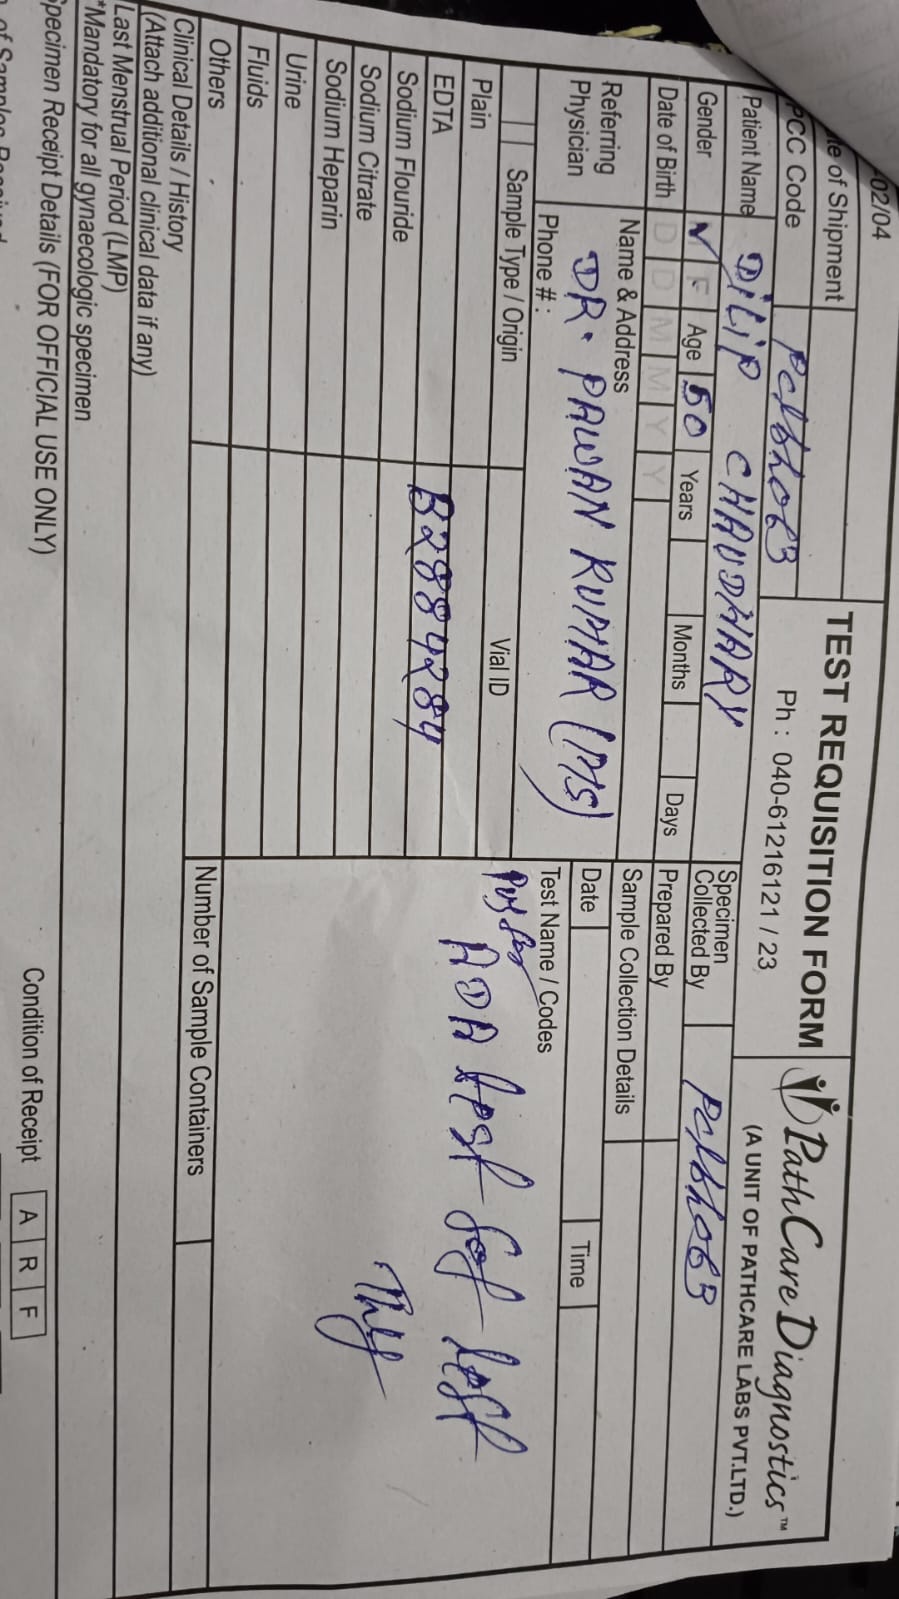 -02/04
te of Shipment
TEST REQUISITION FORM
PathCare Diagnostics™
PCC Code
Ph : 040-61216121 / 23
(A UNIT OF PATHCARE LABS PVT.LTD.)
Patient Name DILIP CHAUDHARY
Specimen Collected By
Gender ✓ F Age 50 Years Months Days
Prepared By
Date of Birth D D M M Y Y
Sample Collection Details
Referring Physician
Name & Address
DR. PAWAN KUMAR (MS)
Date Time
Phone #:
Test Name / Codes
Sample Type / Origin Vial ID
Plain
ADA
EDTA B2884284
Sodium Flouride
Sodium Citrate
Sodium Heparin
Urine
Fluids
Others
Number of Sample Containers
Clinical Details / History
(Attach additional clinical data if any)
Last Menstrual Period (LMP)
*Mandatory for all gynaecologic specimen
Specimen Receipt Details (FOR OFFICIAL USE ONLY)
Condition of Receipt A R F